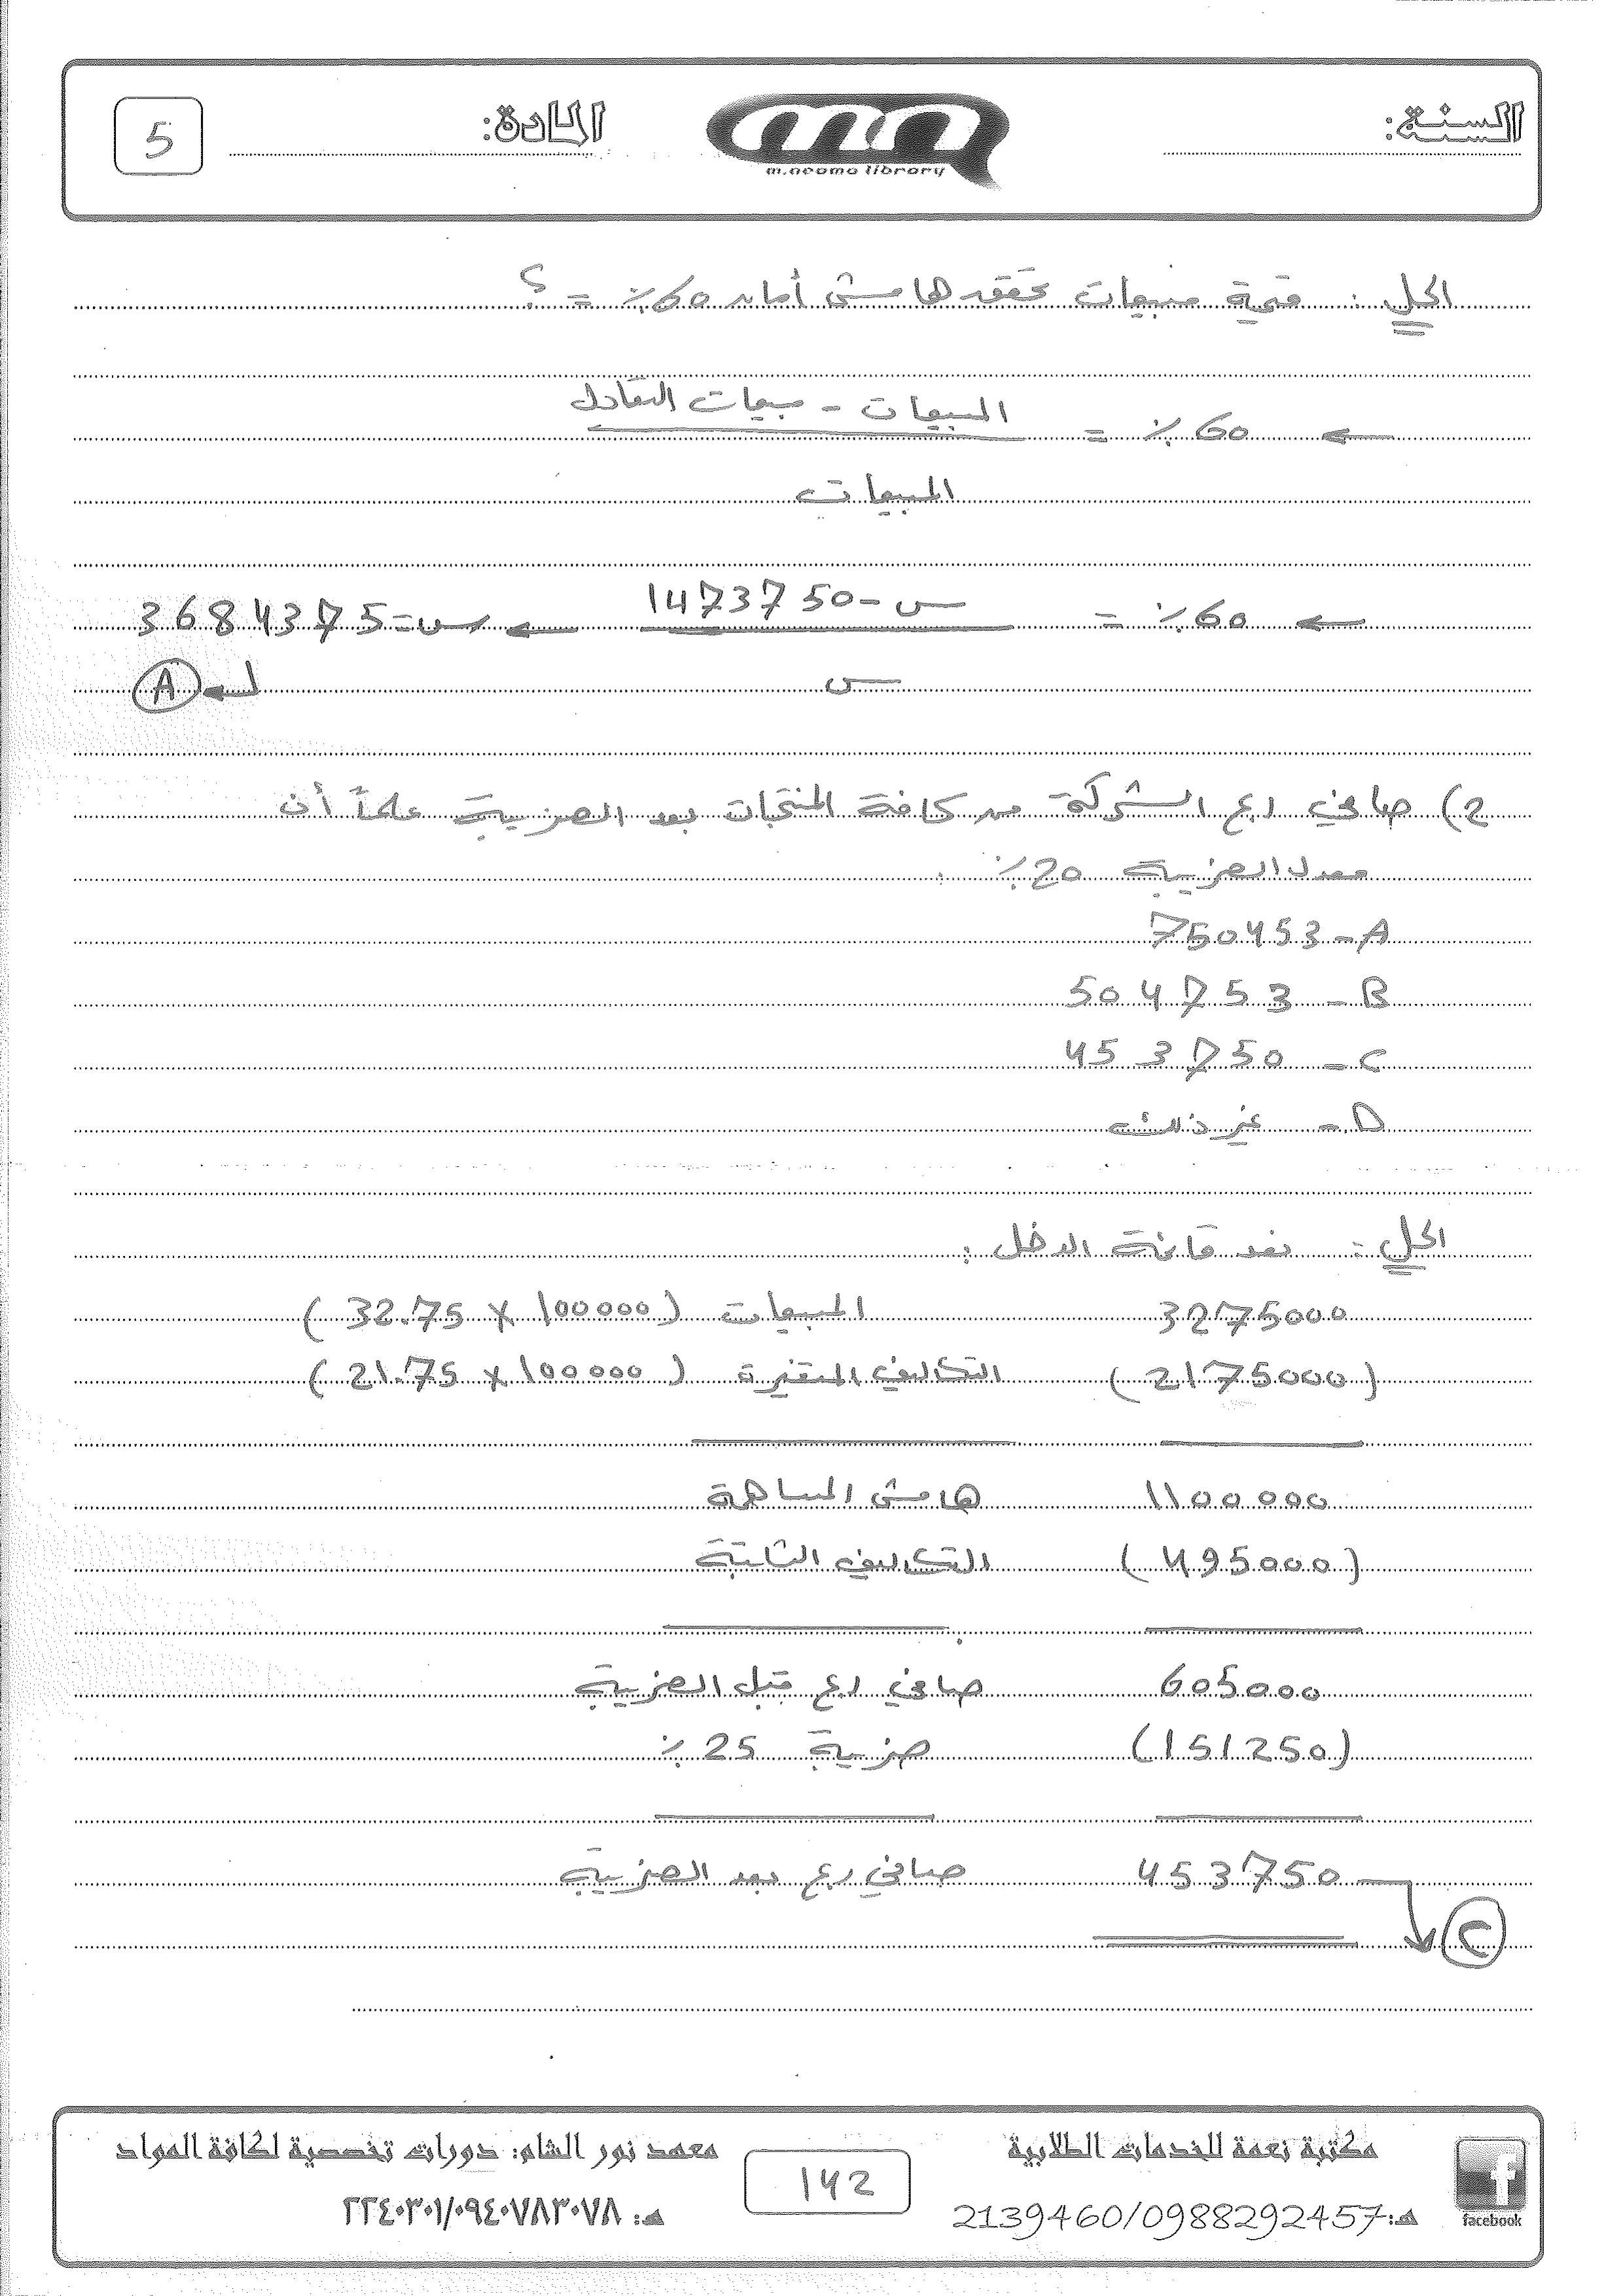 السنة:
المادة:
5
m.neama library
الحل : قيمة مبيعات تحقق هامش أمان 60٪ = ؟
← 60٪ = المبيعات - مبيعات التعادل
المبيعات
← 60٪ = س - 1473750 ← س = 3684375
س
A
2) صافي ربح الشركة من كافة المنتجات بعد الضريبة علماً أن
معدل الضريبة 20٪ :
A - 750453
B - 504753
C - 453750
D - غير ذلك
الحل : نعد قائمة الدخل :
3275000 المبيعات (100000 × 32.75)
(2175000) التكاليف المتغيرة (100000 × 21.75)
1100000 هامش المساهمة
(495000) التكاليف الثابتة
605000 صافي ربح قبل الضريبة
(151250) ضريبة 25٪
453750 صافي ربح بعد الضريبة
C
مكتبة نعمة للخدمات الطلابية
هـ: 2139460/0988292457
142
معهد نور الشام: دورات تخصصية لكافة المواد
هـ: ٢٢٤٠٣٠١/٠٩٤٠٧٨٣٠٧٨
facebook